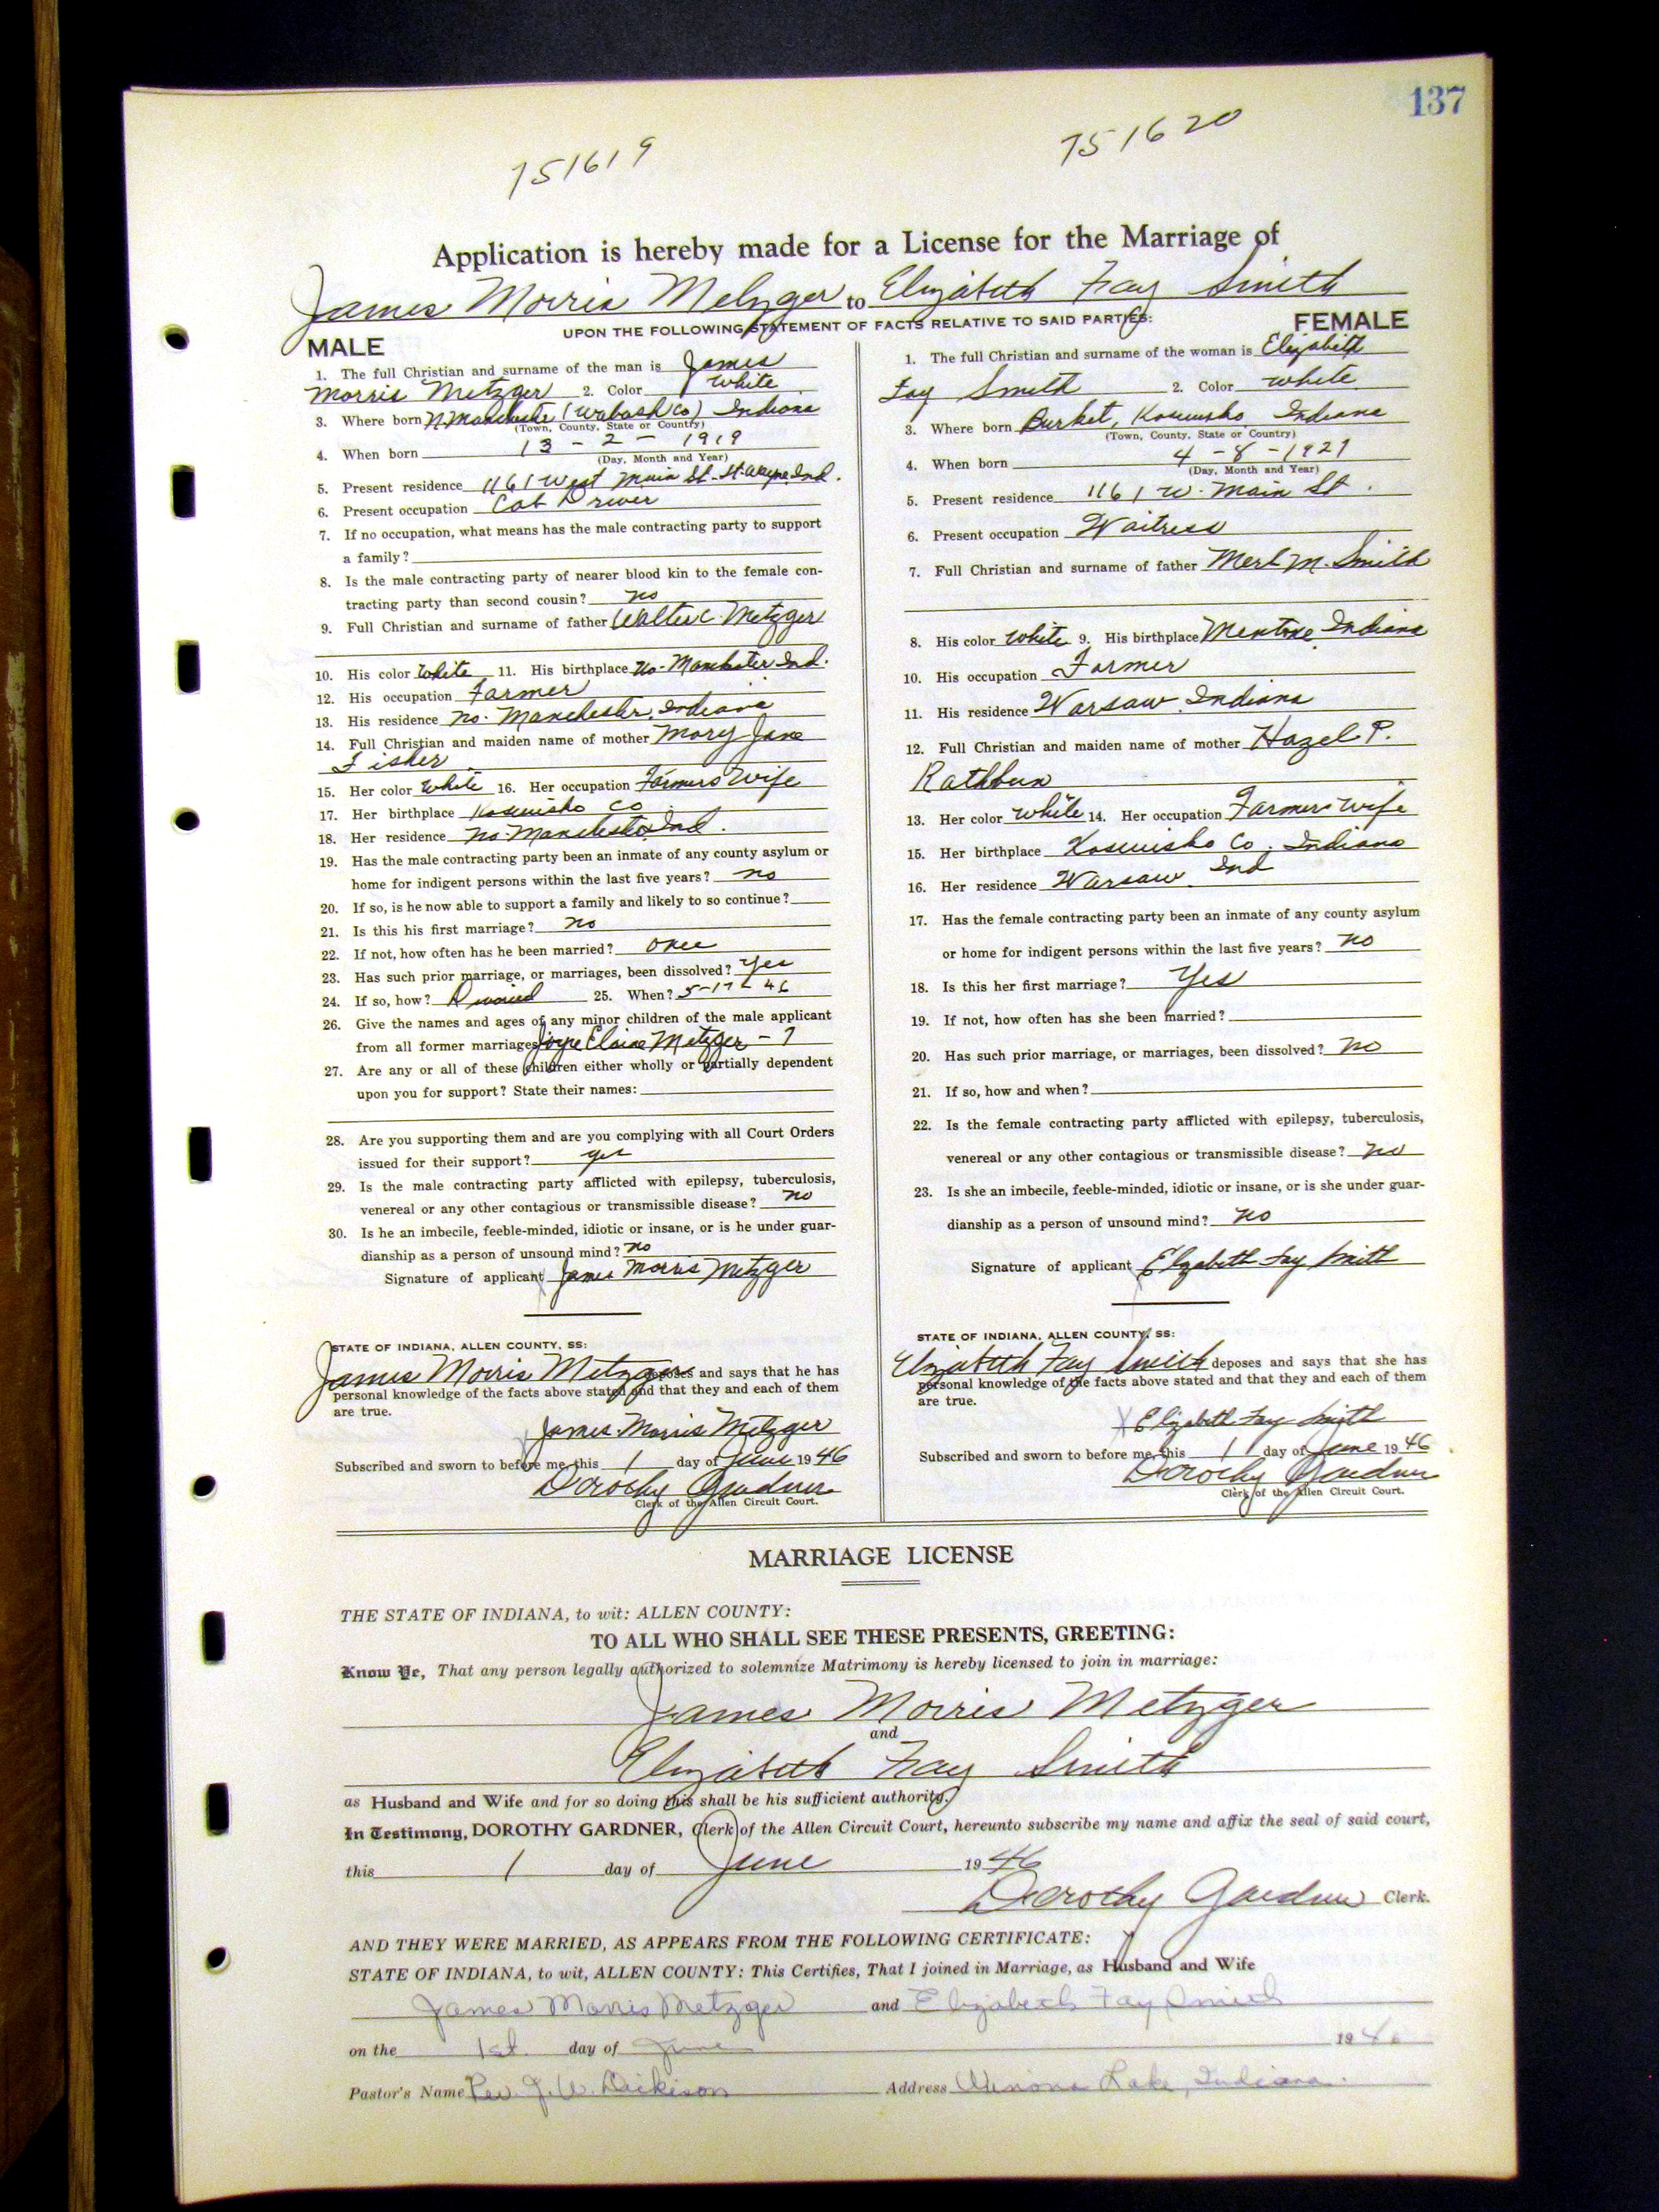 137
751619
751620
Application is hereby made for a License for the Marriage of
James Morris Metzger to Elizabeth Fay Smith
UPON THE FOLLOWING STATEMENT OF FACTS RELATIVE TO SAID PARTIES:
MALE
1. The full Christian and surname of the man is James
Morris Metzger 2. Color White
3. Where born N. Manchester (Wabash Co) Indiana
(Town, County, State or Country)
4. When born 13 - 2 - 1919
(Day, Month and Year)
5. Present residence 1161 West Main St. Ft. Wayne, Ind.
6. Present occupation Cab Driver
7. If no occupation, what means has the male contracting party to support
a family?
8. Is the male contracting party of nearer blood kin to the female con-
tracting party than second cousin? no
9. Full Christian and surname of father Walter C. Metzger
10. His color White 11. His birthplace No. Manchester Ind.
12. His occupation Farmer
13. His residence No. Manchester, Indiana
14. Full Christian and maiden name of mother Mary Jane
Fisher
15. Her color White 16. Her occupation Farmers Wife
17. Her birthplace Kosciusko Co
18. Her residence No. Manchester Ind.
19. Has the male contracting party been an inmate of any county asylum or
home for indigent persons within the last five years? no
20. If so, is he now able to support a family and likely to so continue?
21. Is this his first marriage? no
22. If not, how often has he been married? once
23. Has such prior marriage, or marriages, been dissolved? Yes
24. If so, how? Divorced 25. When? 5-17-46
26. Give the names and ages of any minor children of the male applicant
from all former marriages Joyce Elaine Metzger - 7
27. Are any or all of these children either wholly or partially dependent
upon you for support? State their names:
28. Are you supporting them and are you complying with all Court Orders
issued for their support? yes
29. Is the male contracting party afflicted with epilepsy, tuberculosis,
venereal or any other contagious or transmissible disease? no
30. Is he an imbecile, feeble-minded, idiotic or insane, or is he under guar-
dianship as a person of unsound mind? no
Signature of applicant James Morris Metzger
STATE OF INDIANA, ALLEN COUNTY, SS:
James Morris Metzger deposes and says that he has
personal knowledge of the facts above stated and that they and each of them
are true.
X James Morris Metzger
Subscribed and sworn to before me, this 1 day of June 1946
Dorothy Gardner
Clerk of the Allen Circuit Court.
FEMALE
1. The full Christian and surname of the woman is Elizabeth
Fay Smith 2. Color White
3. Where born Burket, Kosciusko Indiana
(Town, County, State or Country)
4. When born 4 - 8 - 1921
(Day, Month and Year)
5. Present residence 1161 W. Main St.
6. Present occupation Waitress
7. Full Christian and surname of father Merl M. Smith
8. His color White 9. His birthplace Mentone Indiana
10. His occupation Farmer
11. His residence Warsaw, Indiana
12. Full Christian and maiden name of mother Hazel P.
Rathbun
13. Her color White 14. Her occupation Farmers wife
15. Her birthplace Kosciusko Co. Indiana
16. Her residence Warsaw Ind
17. Has the female contracting party been an inmate of any county asylum
or home for indigent persons within the last five years? no
18. Is this her first marriage? Yes
19. If not, how often has she been married?
20. Has such prior marriage, or marriages, been dissolved? no
21. If so, how and when?
22. Is the female contracting party afflicted with epilepsy, tuberculosis,
venereal or any other contagious or transmissible disease? no
23. Is she an imbecile, feeble-minded, idiotic or insane, or is she under guar-
dianship as a person of unsound mind? no
Signature of applicant Elizabeth Fay Smith
STATE OF INDIANA, ALLEN COUNTY, SS:
Elizabeth Fay Smith deposes and says that she has
personal knowledge of the facts above stated and that they and each of them
are true.
X Elizabeth Fay Smith
Subscribed and sworn to before me, this 1 day of June 1946
Dorothy Gardner
Clerk of the Allen Circuit Court.
MARRIAGE LICENSE
THE STATE OF INDIANA, to wit: ALLEN COUNTY:
TO ALL WHO SHALL SEE THESE PRESENTS, GREETING:
Know Ye, That any person legally authorized to solemnize Matrimony is hereby licensed to join in marriage:
James Morris Metzger
and
Elizabeth Fay Smith
as Husband and Wife and for so doing this shall be his sufficient authority.
In Testimony, DOROTHY GARDNER, Clerk of the Allen Circuit Court, hereunto subscribe my name and affix the seal of said court,
this 1 day of June 1946
Dorothy Gardner Clerk.
AND THEY WERE MARRIED, AS APPEARS FROM THE FOLLOWING CERTIFICATE:
STATE OF INDIANA, to wit, ALLEN COUNTY: This Certifies, That I joined in Marriage, as Husband and Wife
James Morris Metzger and Elizabeth Fay Smith
on the 1st. day of June 1946
Pastor's Name Rev. J. W. Dickison Address Winona Lake, Indiana.